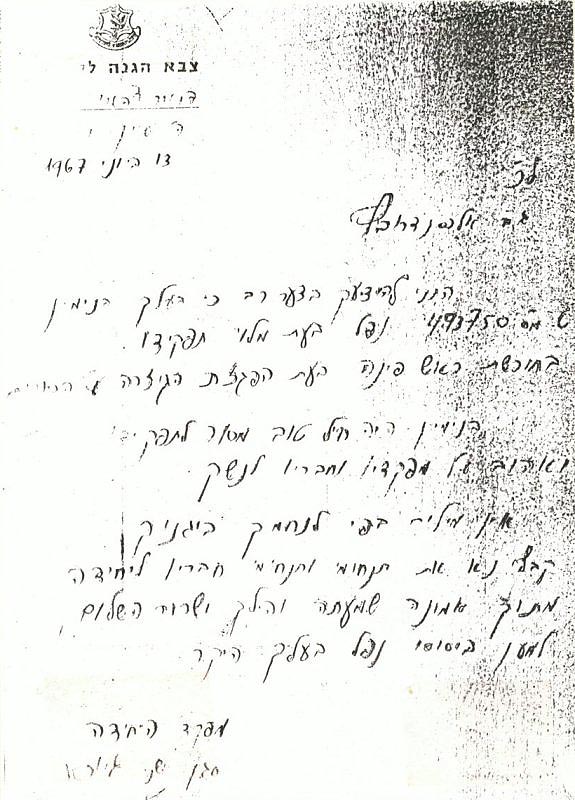 צבא הגנה ל
ה סיון
20 ביוני 1967
לכ'
גב' אלכסנדרוביץ
הנני להודיעך בצער רב כי בעלך בנימין
מס 493750 נפל בעת מלוי תפקידו
בחורשת ראש פינה בעת הפגזת הגיזרה ע
בנימין היה חייל טוב מסור לתפקידו
ואהוב על מפקדיו וחבריו לנשק
אין מילים בפי לנחמך ביגונך
קבלי נא את תנחומי ותנחומי חבריו ליחידה
מתוך אמונה שמעתה והלך ישרור השלום
למען ביסוסו נפל בעלך היקר
מפקד היחידה
סגן